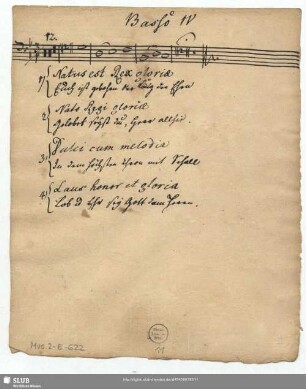 Basso IV
12.
1) Natus est Rex gloriæ
Euch ist gebohren der König der Ehren
2) Nato Regi gloriæ
Gelobet seyst du, Herr allhie.
3) Dulci cum melodia
In dem höchsten Thron mit Schall
4) Laus honor et gloria
Lob u Ehr sey Gott dem Herrn.
Mus. 2-E-622
11
SLUB